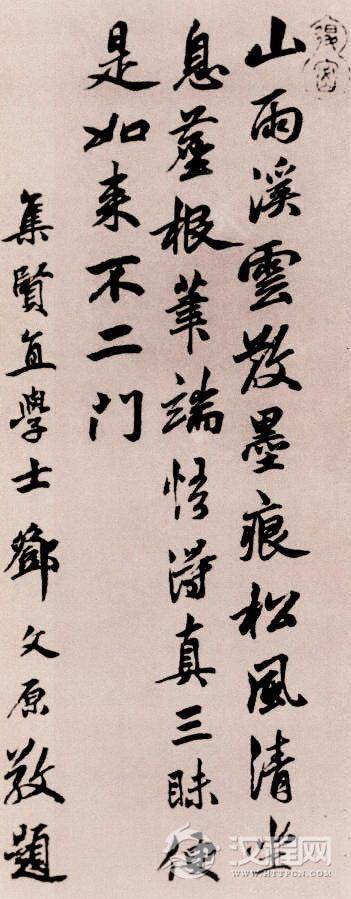 山雨溪雲散墨痕松風清坐
息塵根筆端悟得真三昧便
是如来不二門
集賢直學士鄧文原敬題
汉程网
HTTPCN.COM